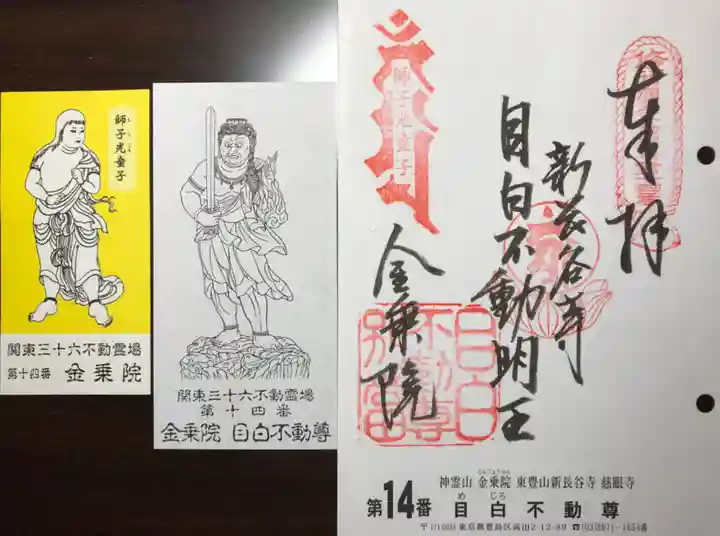 師子光童子
関東三十六不動霊場
第十四番 金乗院
関東三十六不動霊場
第十四番
金乗院 目白不動尊
師子光童子
奉拝
新長谷寺
目白不動明王
金乗院
神霊山 金乗院 東豊山新長谷寺 慈眼寺
第14番 目白不動尊
め じろ
東京都豊島区高田2-12-39